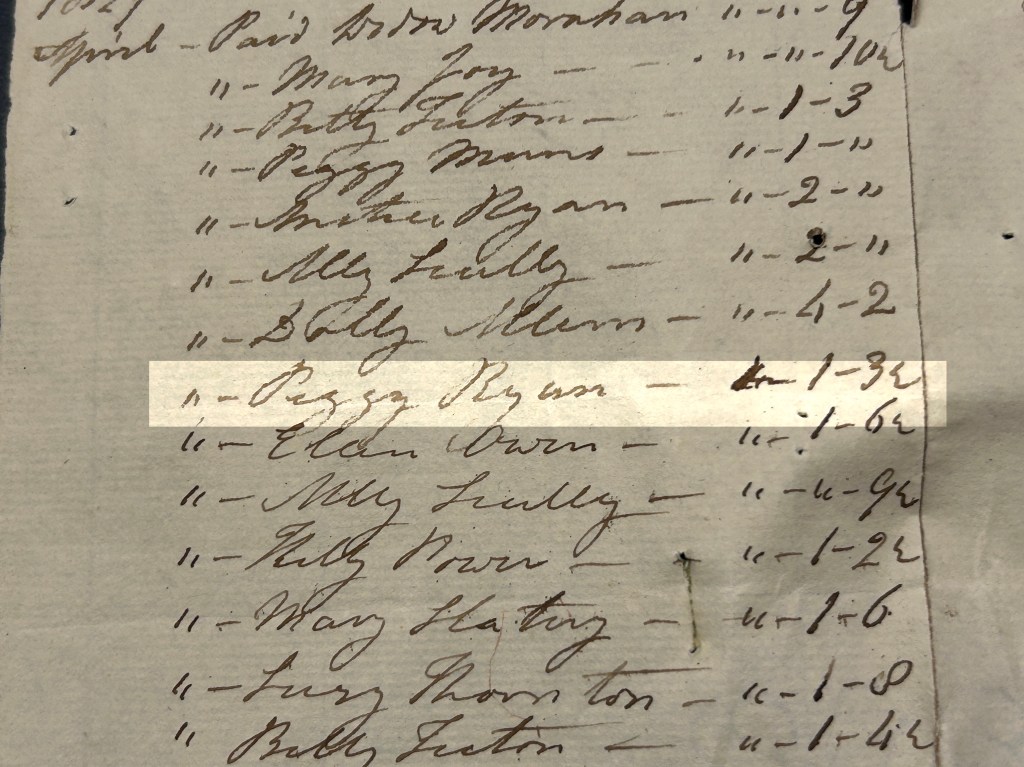 April - Paid Widow Monahan "-"-9
"-Mary Joy - - "-"-10½
"-Betty Fenton - - "-1-3
"-Peggy Muns - "-1-"
"- Ryan - "-2-"
"-Ally Scully - "-2-"
"-Dolly Allen - "-4-2
"-Peggy Ryan - "-1-3½
"-Elan Owen - "-1-6½
"-Ally Scully - "-"-9½
"-Kitty Power - "-1-2½
"-Mary Slatery - "-1-6
"-Suzy Thornton - "-1-8
" Betty Fenton - "-1-4½